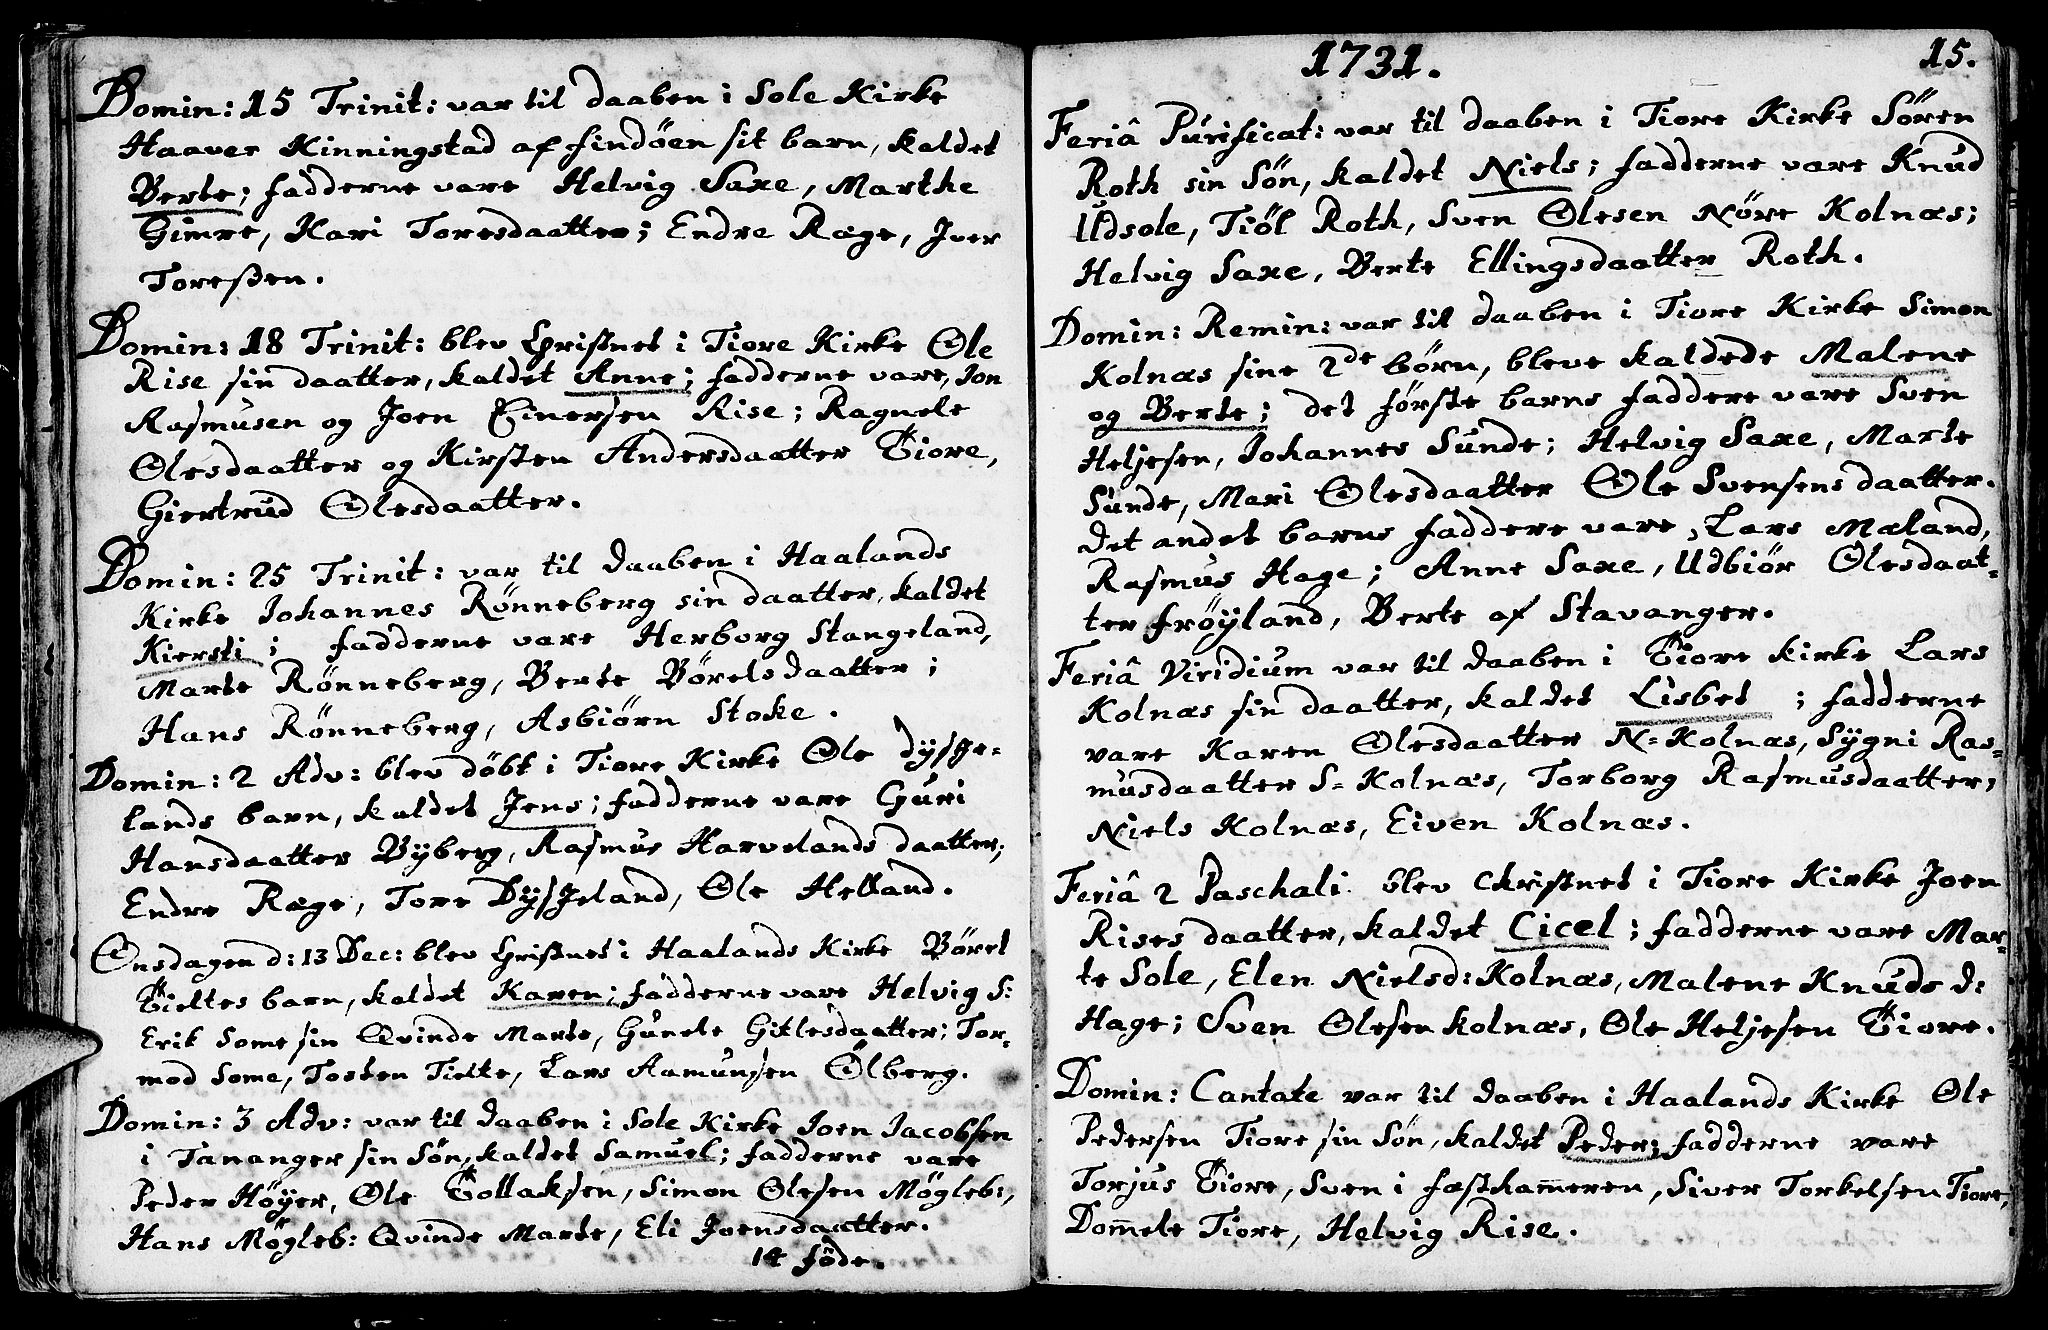 Domin: 15 Trinit: var til daaben i Sole Kirke
Haaver Kinningstad af findöen sit barn, kaldet
Berte; fadderne vare Helvig Saxe, Marthe
Gimre, Kari Toresdaatter; Endre Ræge, Iver
Toreßen.
Domin: 18 Trinit: blev Christnet i Tiore Kirke Ole
Rise sin daatter, kaldet Anne; fadderne vare, Jon
Rasmusen og Joen Einersen Rise; Ragnele
Olesdaatter og Kirsten Andersdaatter Tiore,
Giertrud Olesdaatter.
Domin: 25 Trinit: var til daaben i Haalands
Kirke Johannes Rönneberg sin daatter, kaldet
Kiersti; fadderne vare Herborg Stangeland,
Marte Rönneberg, Berte Börelsdaatter;
Hans Rönneberg, Asbiörn Stoke.
Domin: 2 Adv: blev döbt i Tiore Kirke Ole dysje=
lands barn, kaldet Jens; fadderne vare Guri
Hansdaatter Byberg, Rasmus Harvelands daatter;
Endre Ræge, Tore Dysjeland, Ole Helland.
Onsdagen d: 13 Dec: blev Christnet i Haalands Kirke Börel
Tieltes barn, kaldet Karen; fadderne vare Helvig S:
Erik Some sin Qvinde Marte, Gunele Gitlesdaatter; Tor=
mod Some, Tosten Tielte, Lars Aamunsen Ölberg.
Domin: 3 Adv: var til daaben i Sole Kirke Joen Jacobsen
i Tananger sin Sön, kaldet Samuel; fadderne vare
Peder Höyer, Ole Tollaksen, Simon Olesen Mögleb:,
Hans Mögleb: Qvinde Marte, Eli Joensdaatter.
14 föde.
1731.
15.
Feriâ Purificat: var til daaben i Tiore Kirke Sören
Roth sin Sön, kaldet Niels; fadderne vare Knud
Udsole, Tiöl Roth, Sven Olesen Nöre Kolnæs;
Helvig Saxe, Berte Ellingsdaatter Roth.
Domin: Remin: var til daaben i Tiore Kirke Simon
Kolnæs sine 2de börn, bleve kaldede Malene
og Berte; det förste barns faddere vare Sven
Heljesen, Johannes Sunde; Helvig Saxe, Marte
Sunde, Mari Olesdaatter Ole Svensens daatter.
det andet barns faddere vare, Lars Mæland,
Rasmus Hage; Anne Saxe, Udbiör Olesdaat=
ter fröyland, Berte af Stavanger.
Feriâ Viridium var til daaben i Tiore kirke Lars
Kolnæs sin daatter, kaldet Lisbet; fadderne
vare Karen Olesdaatter N=Kolnæs, Sygni Ras=
musdaatter S=Kolnæs, Torborg Rasmusdaatter;
Niels Kolnæs, Eiven Kolnæs.
Feriâ 2 Paschali blev Christnet i Tiore Kirke Joen
Rises daatter, kaldet Cicel; fadderne vare Mar=
te Sole, Elen Nielsd: Kolnæs, Malene Knuds d:
Hage; Sven Olesen kolnæs, Ole Heljesen Tiore.
Domin: Cantate var til daaben i Haalands Kirke Ole
Pedersen Tiore sin Sön, kaldet Peder; fadderne vare
Torjus Tiore, Sven i fæstham̄eren, Siver Torkelsen Tiore,
Dom̄ele Tiore, Helvig Rise.